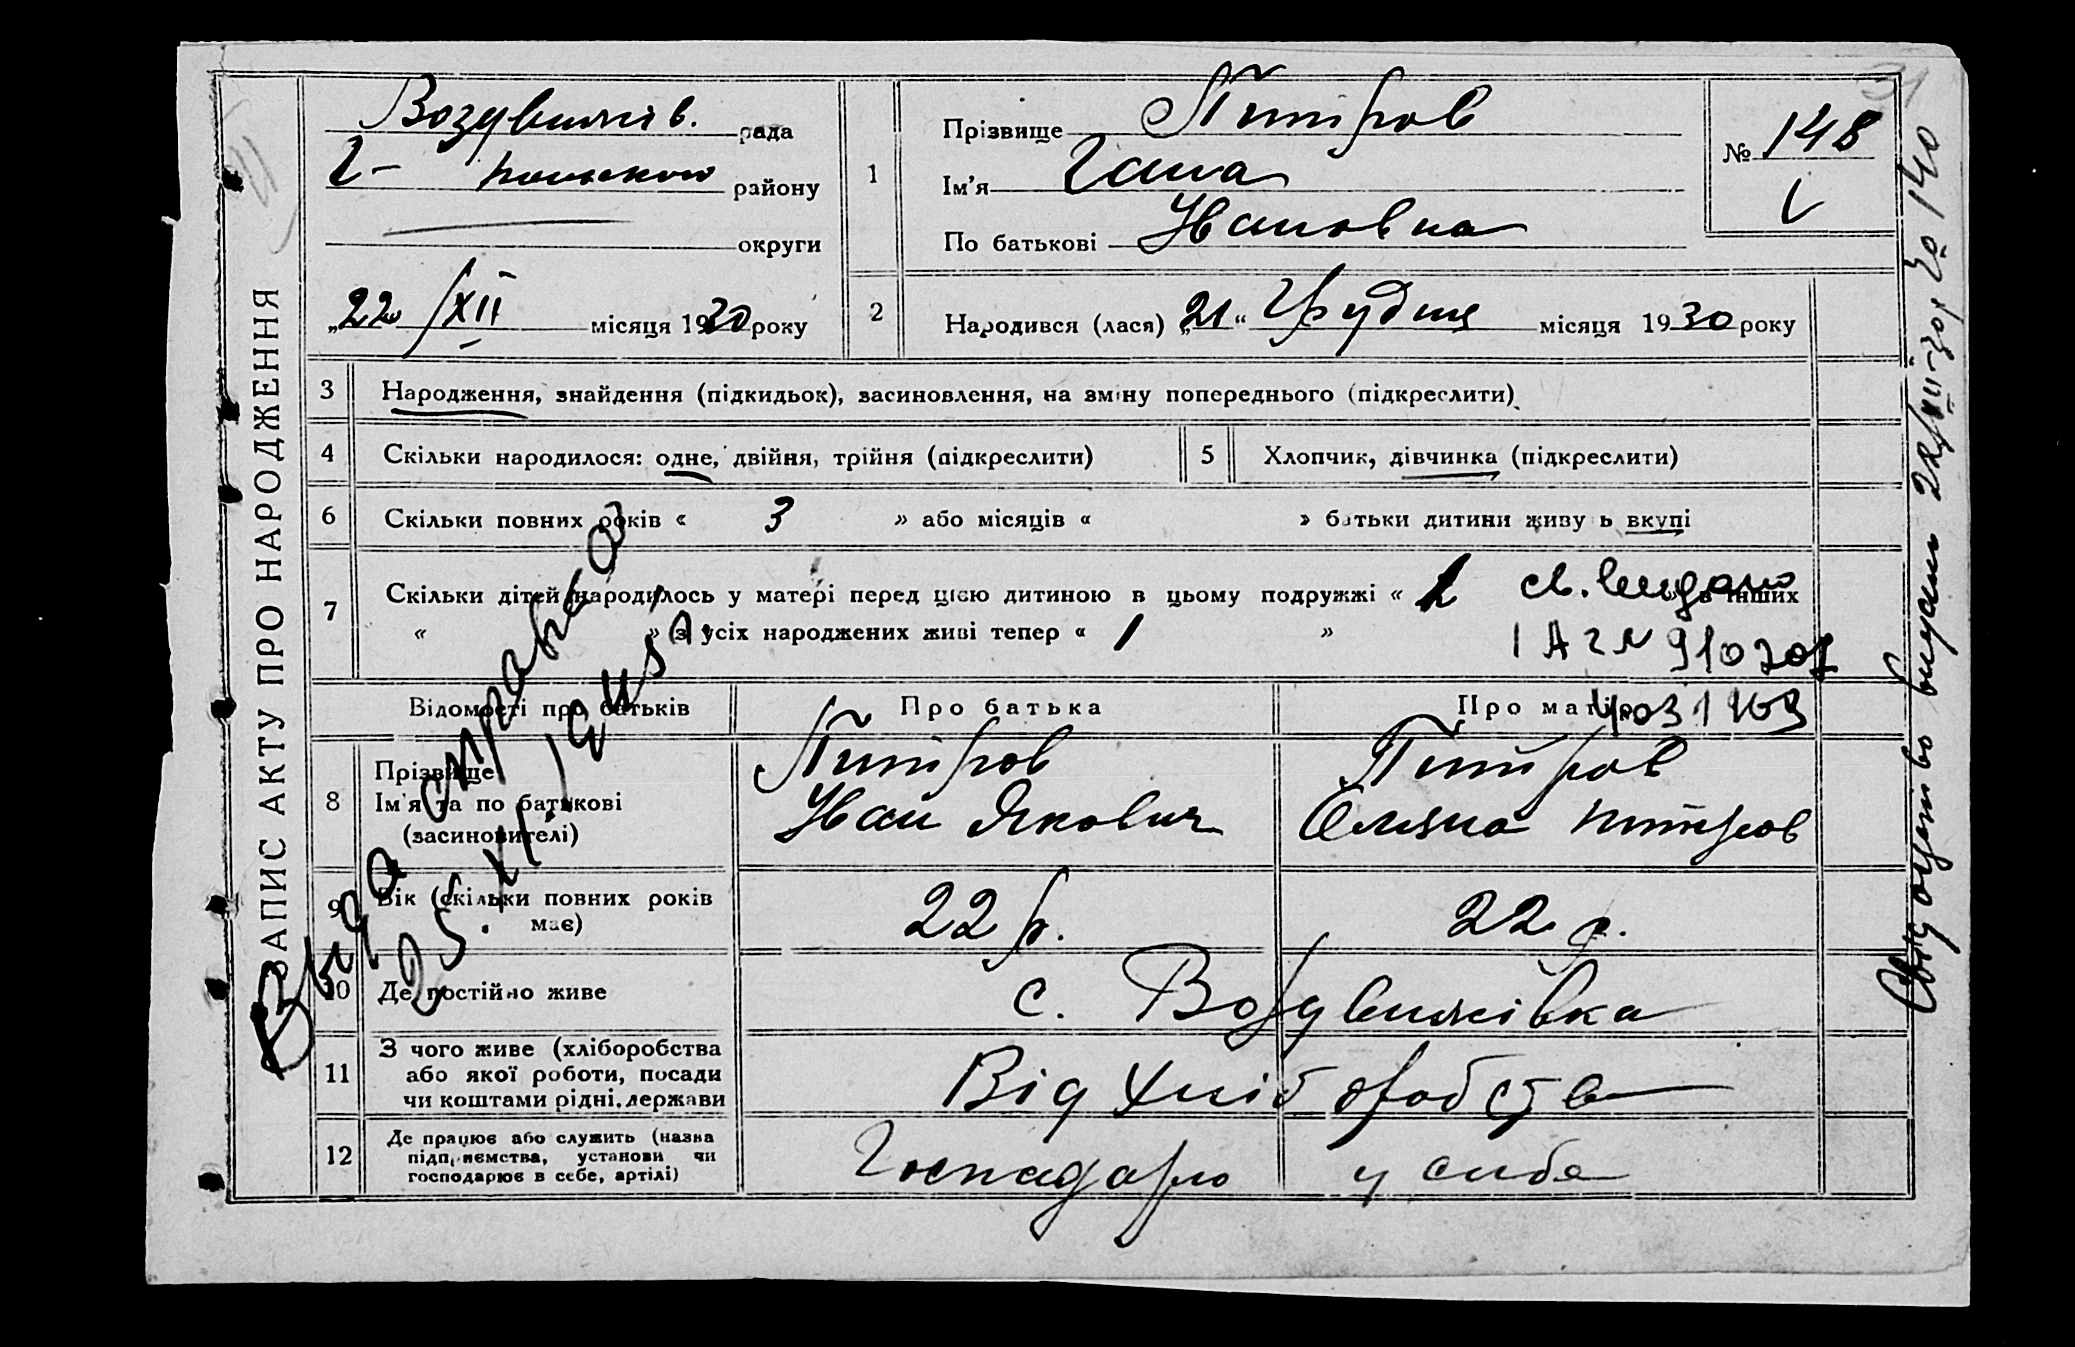 ЗАПИС АКТУ ПРО НАРОДЖЕННЯ
Воздвижів. рада
Г- району
округи
„22 /XII місяця 1930 року
1
Прізвище Питіров
Ім'я Гана
По батькові Іванов на
№ 148
2
Народився (лася) „21“ Грудня місяця 1930 року
3 Народження, знайдення (підкидьок), засиновлення, на зміну попереднього (підкреслити)
4 Скільки народилося: одне, двійня, трійня (підкреслити)
5 Хлопчик, дівчинка (підкреслити)
6 Скільки повних років « 3 » або місяців « » батьки дитини живуть вкупі
7 Скільки дітей народилось у матері перед цією дитиною в цьому подружжі « » в інших
« » з усіх народжених живі тепер « 1 »
св. видано
910207
Відомості про батьків
Про батька
Про матір
8 Прізвище
Ім'я та по батькові
(засиновителі)
Питіров
Іван Якович
Питіров
Оляна
9 Вік (скільки повних років
має)
22 р.
22 р.
10 Де постійно живе
с. Воздвижівка
11 З чого живе (хліборобства
або якої роботи, посади
чи коштами рідні, держави
Від хліборобств
12 Де працює або служить (назва
підприємства, установи чи
господарює в себе, артілі)
Господарю у себе
Выдана справка
25.VI.
Свідоцтво видано 22/XII-30 р. за № 140